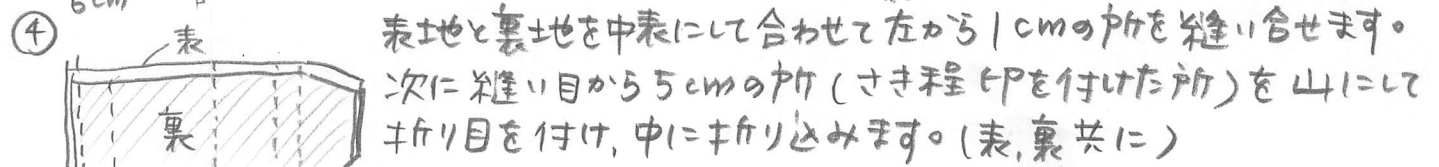 ④
表
裏
表地と裏地を中表にして合わせて左から1cmの所を縫い合せます。
次に縫い目から5cmの所(さき程印を付けた所)を山にして
折り目を付け、中に折り込みます。(表、裏共に)